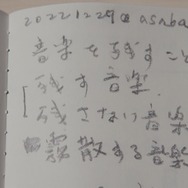 20221229@asaba
音楽を残すこと
残す音楽.
残さない音楽
霧散する音楽